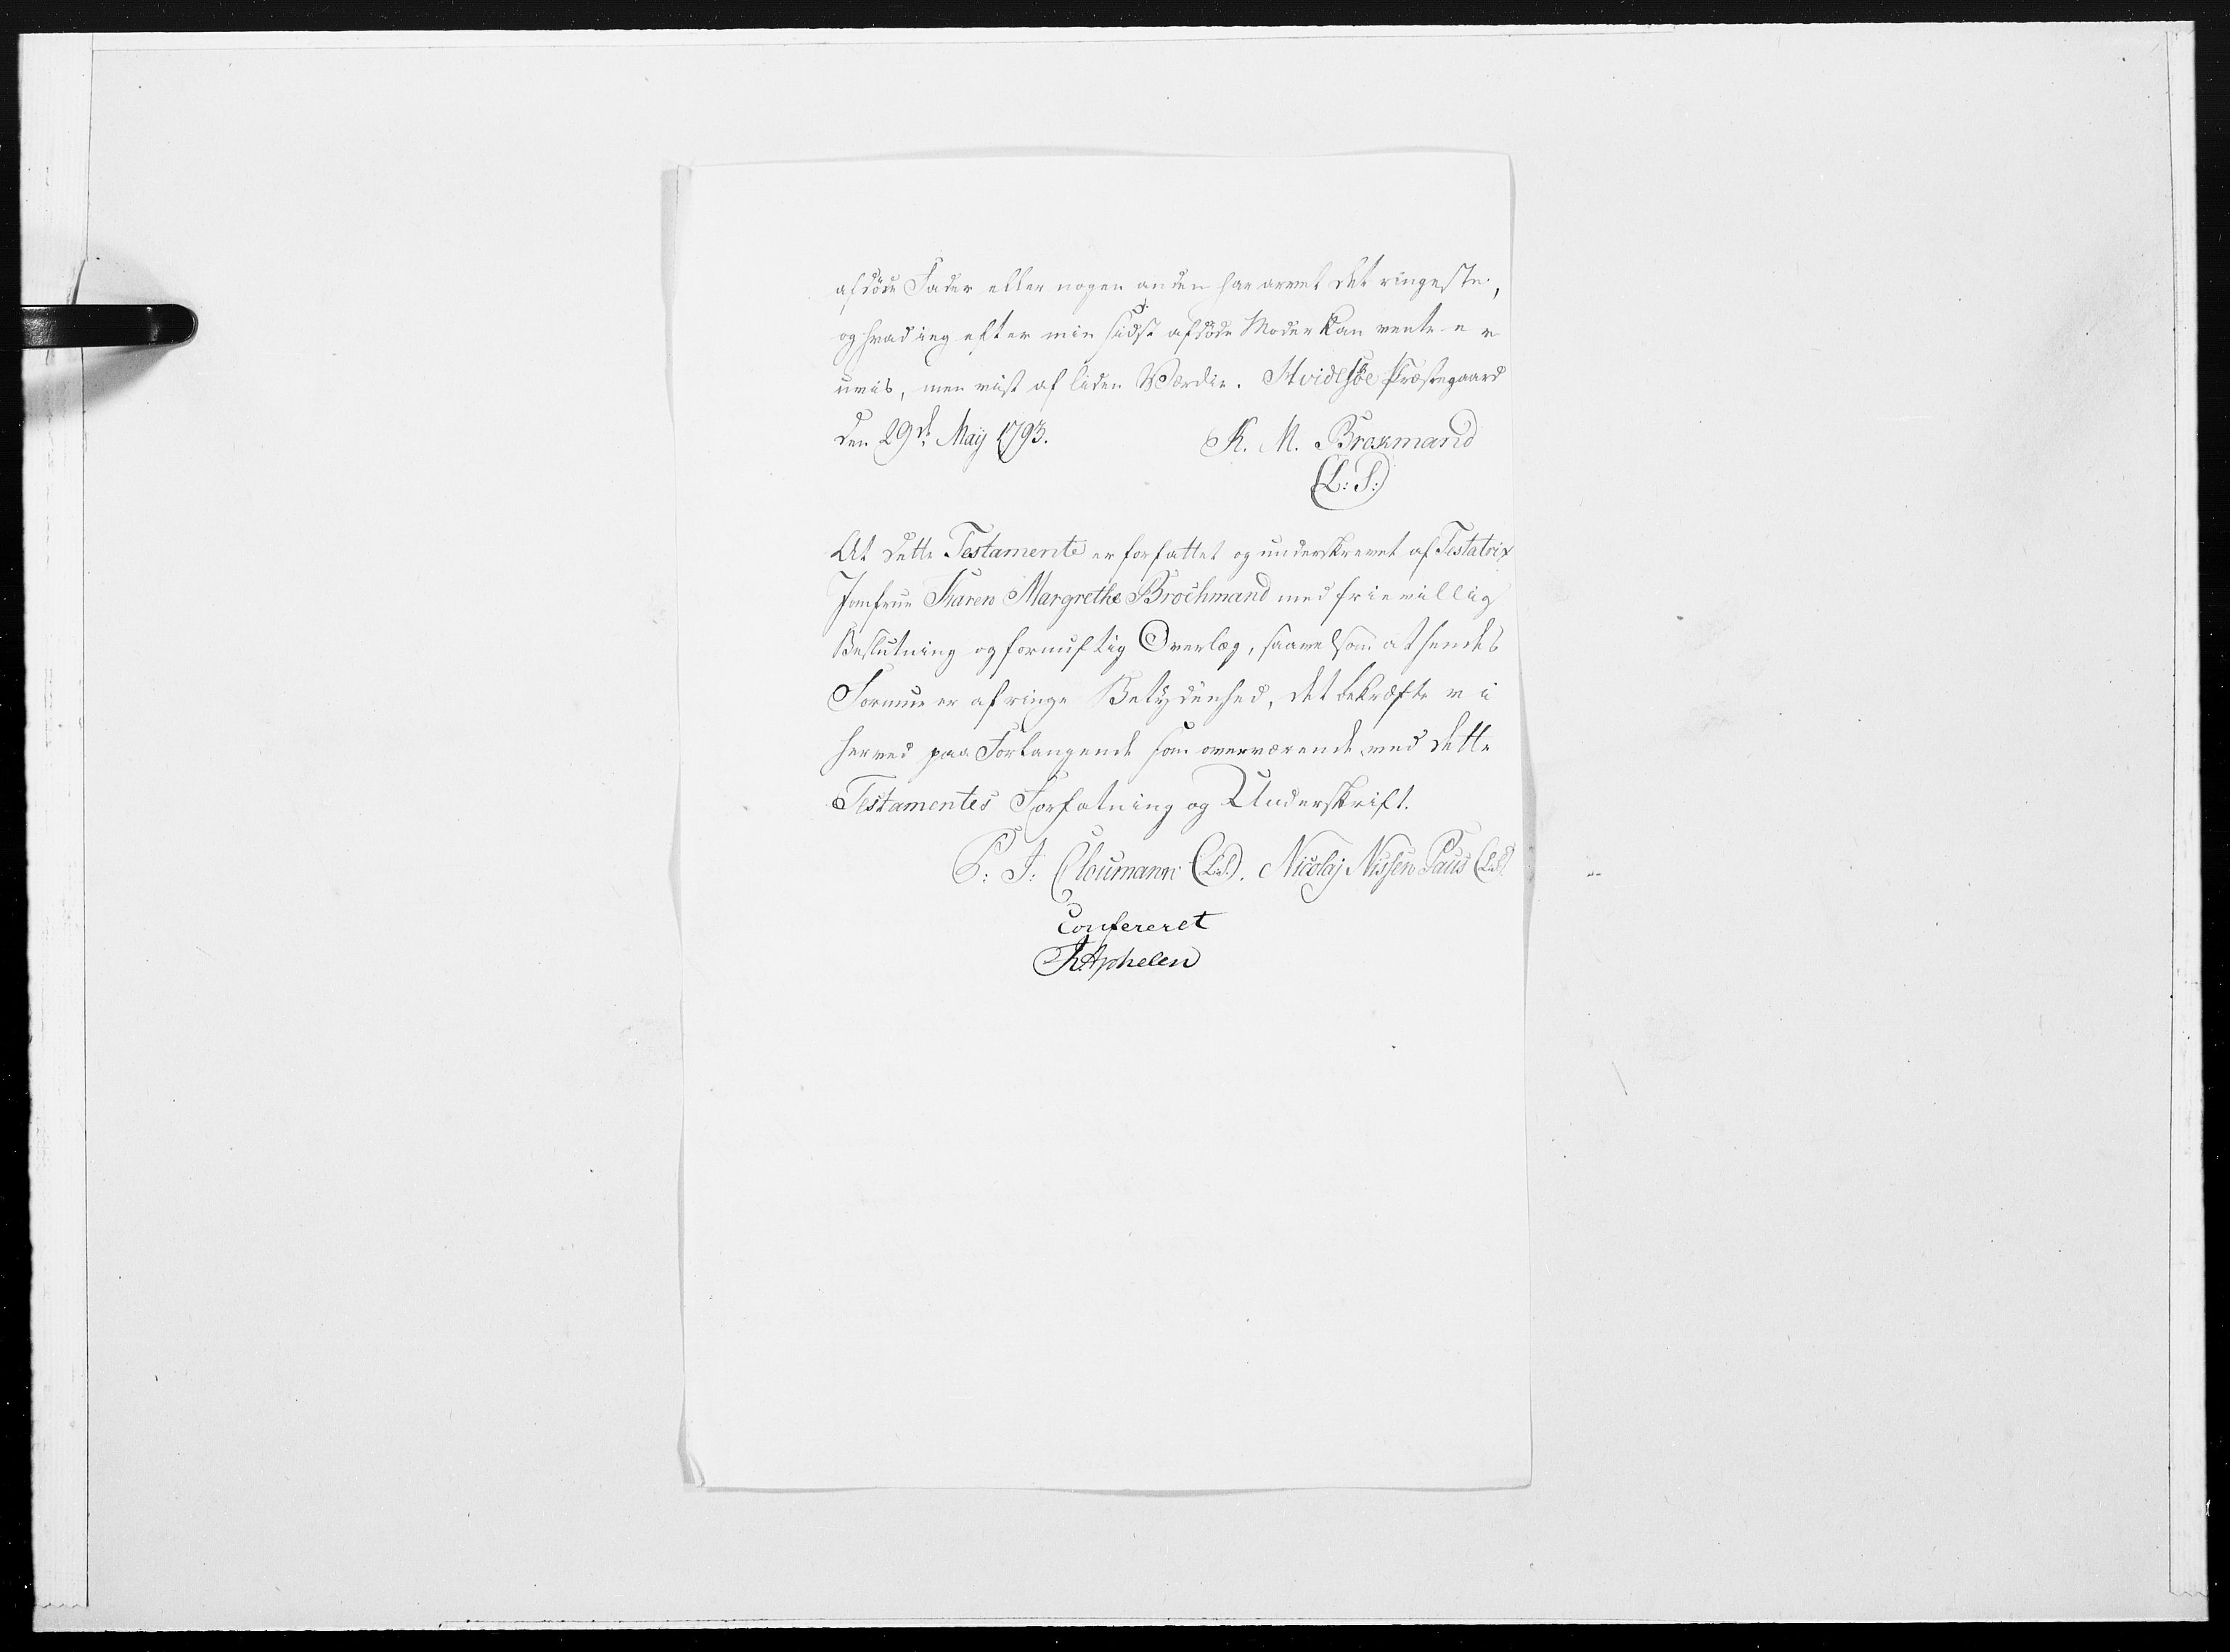 afdöde Fader eller nogen anden har arvet det ringeste,
og hvad ieg efter min sidst afdöde Moder kan vente er
uvis, men vist af liden Værdie. Hvidesöe Præstegaard
den 29de May 1793. K. M. Brokmand
(L: S:)
At dette Testamente er forfattet og underskrevet af Testatrix
Jomfrue Karen Margrethe Brochmand med frievillig
Beslutning og fornuftig Overlæg, saavelsom at hendes
Formue er af ringe Betydenhed, det bekræfte vi
herved paa Forlangende som overværende ved dette
Testamentes Forfatning og Underskrift.
P: J: Cloumann (L.S.). Nicolaj Nissen Paus (L.S.)
Confereret
Th Aphelen